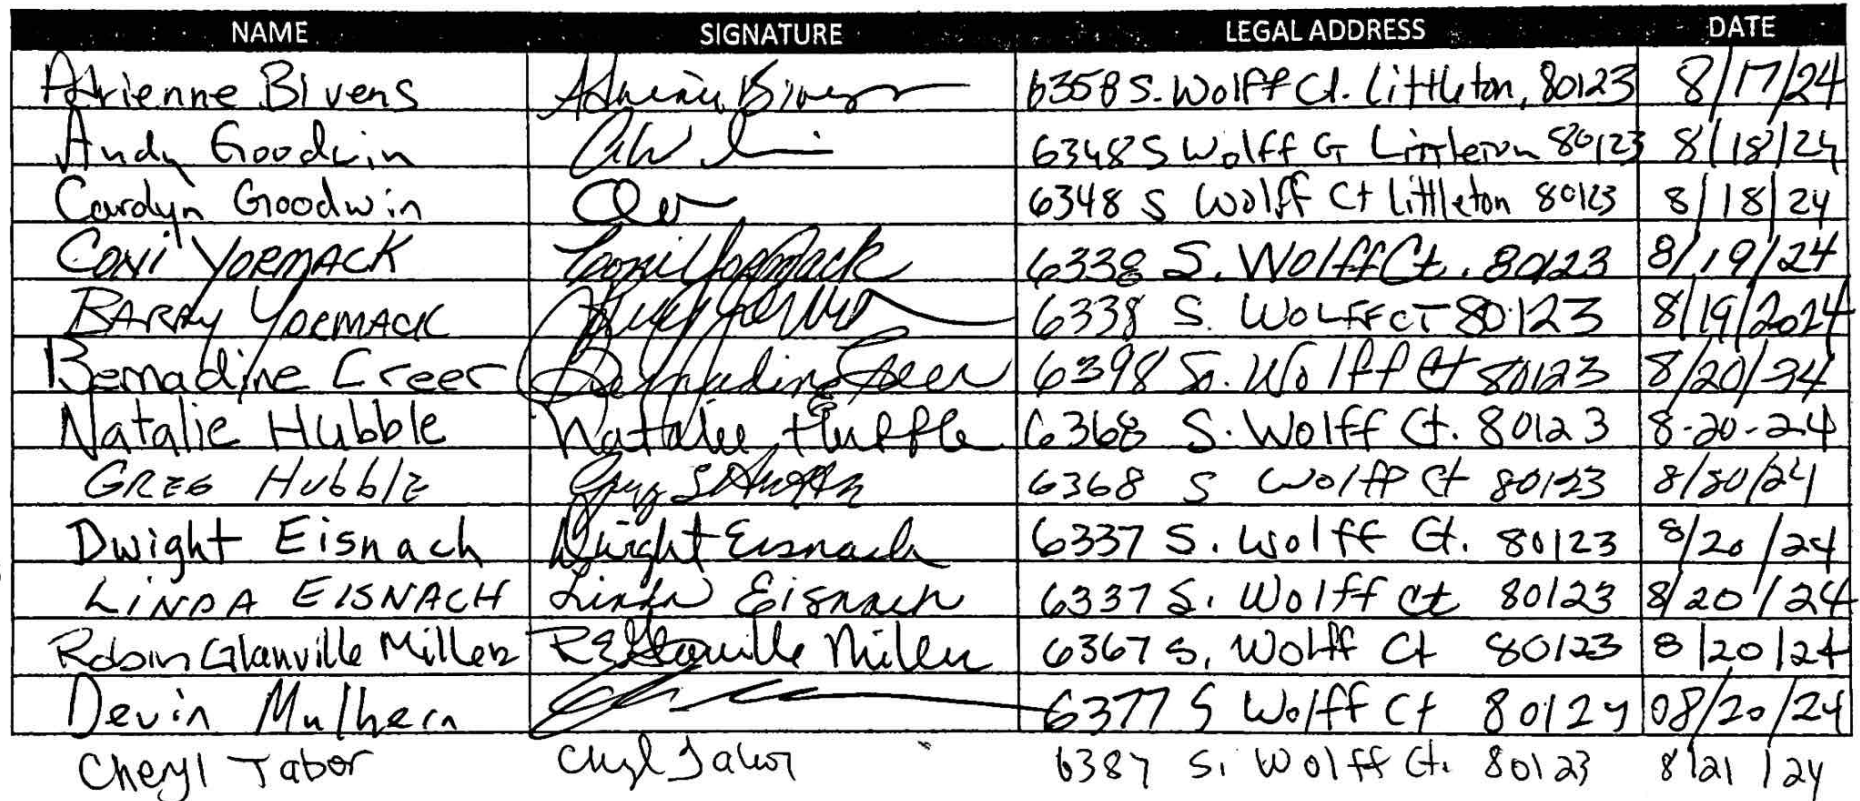 NAME SIGNATURE LEGAL ADDRESS DATE
Adrienne Bivens Adrienne Bivens 6358 S. Wolff Ct. Littleton, 80123 8/17/24
Andy Goodwin 6348 S Wolff Ct Littleton 80123 8/18/24
Carolyn Goodwin 6348 S Wolff Ct Littleton 80123 8/18/24
CONI YORMACK Coni Yormack 6338 S. Wolff Ct. 80123 8/19/24
BARRY YORMACK Barry Yormack 6338 S. WOLFF CT 80123 8/19/2024
Bernadine Creer Bernadine Creer 6398 So. Wolff Ct 80123 8/20/24
Natalie Hubble Natalie Hubble 6368 S. Wolff Ct. 80123 8-20-24
GREG Hubble 6368 S Wolff Ct 80123 8/20/24
Dwight Eisnach Dwight Eisnach 6337 S. Wolff Ct. 80123 8/20/24
LINDA EISNACH Linda Eisnach 6337 S. Wolff Ct 80123 8/20/24
Robin Glanville Miller RE Glanville Miller 6367 S. Wolff Ct 80123 8/20/24
Devin Mulhern 6377 S Wolff Ct 80123 08/20/24
Cheryl Tabor Cheryl Tabor 6387 S. Wolff Ct. 80123 8/21/24